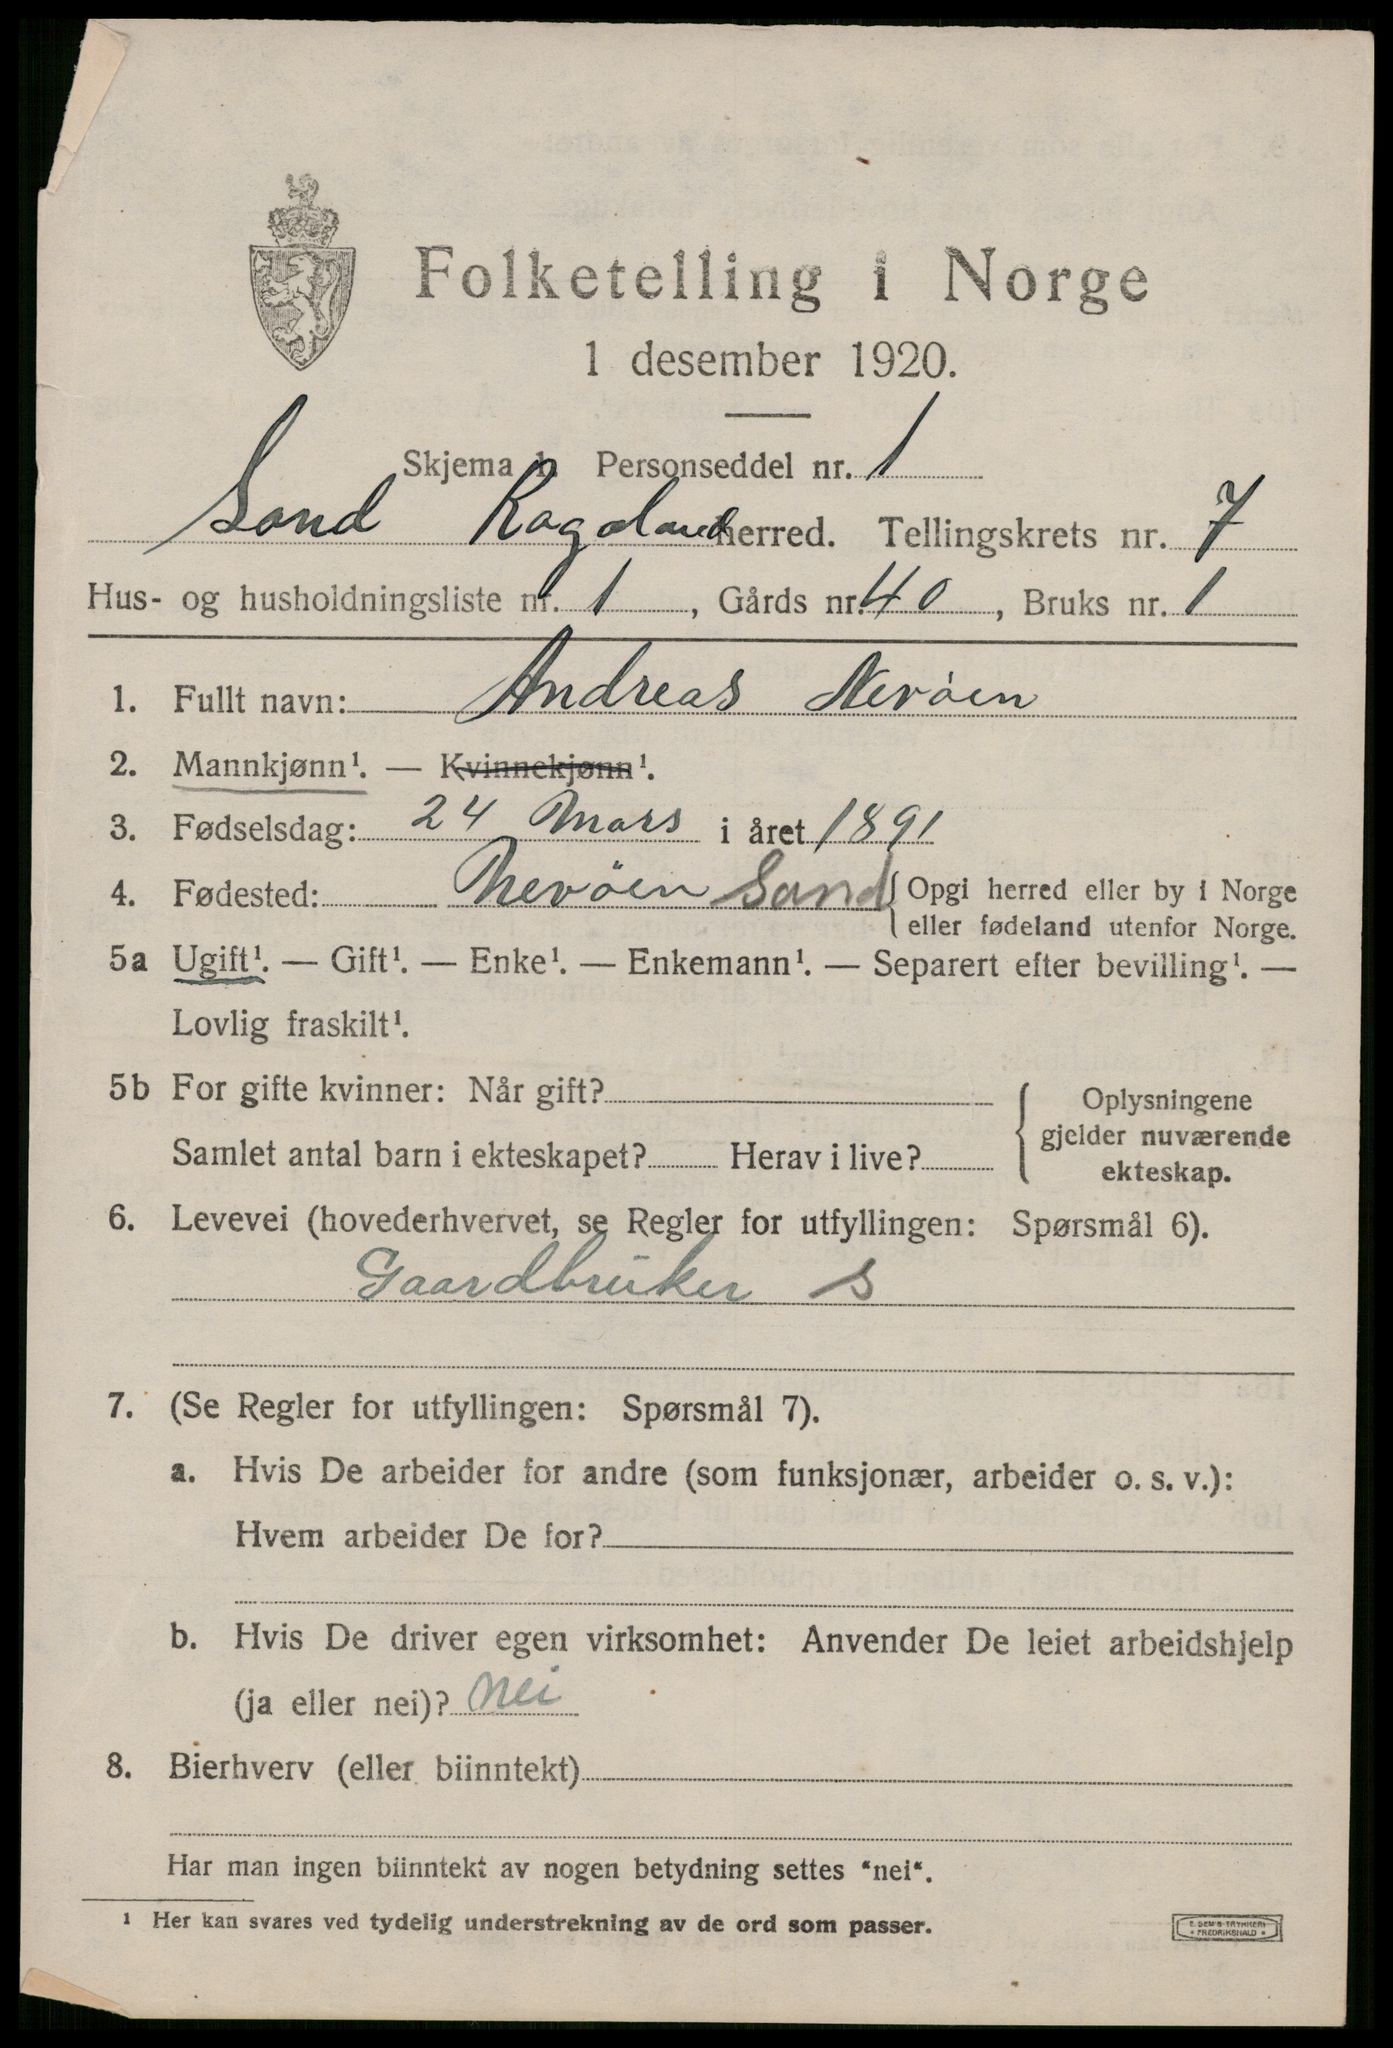 Folketelling i Norge
1 desember 1920.
Skjema 1. Personseddel nr. 1
Sand Rogaland herred. Tellingskrets nr. 7
Hus- og husholdningsliste nr. 1, Gårds nr. 40, Bruks nr. 1
1. Fullt navn: Andreas Nerøen
2. Mannkjønn¹. — Kvinnekjønn¹.
3. Fødselsdag: 24 Mars i året 1891
4. Fødested: Nerøen Sand { Opgi herred eller by i Norge
eller fødeland utenfor Norge.
5a Ugift¹. — Gift¹. — Enke¹. — Enkemann¹. — Separert efter bevilling¹. —
Lovlig fraskilt¹.
5b For gifte kvinner: Når gift?
Samlet antal barn i ekteskapet? Herav i live?
{ Oplysningene
gjelder nuværende
ekteskap.
6. Levevei (hovederhvervet, se Regler for utfyllingen: Spørsmål 6).
Gaardbruker S
7. (Se Regler for utfyllingen: Spørsmål 7).
a. Hvis De arbeider for andre (som funksjonær, arbeider o. s. v.):
Hvem arbeider De for?
b. Hvis De driver egen virksomhet: Anvender De leiet arbeidshjelp
(ja eller nei)? Nei
8. Bierhverv (eller biinntekt)
Har man ingen biinntekt av nogen betydning settes "nei".
¹ Her kan svares ved tydelig understrekning av de ord som passer.
E. SEM'S TRYKKERI
* FREDRIKSHALD *